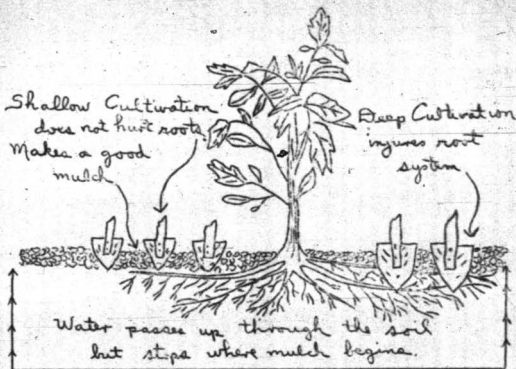 Shallow Cultivation
does not hurt roots
Makes a good
mulch
Deep Cultivation
injures root
system
Water passes up through the soil
but stops where mulch begins.